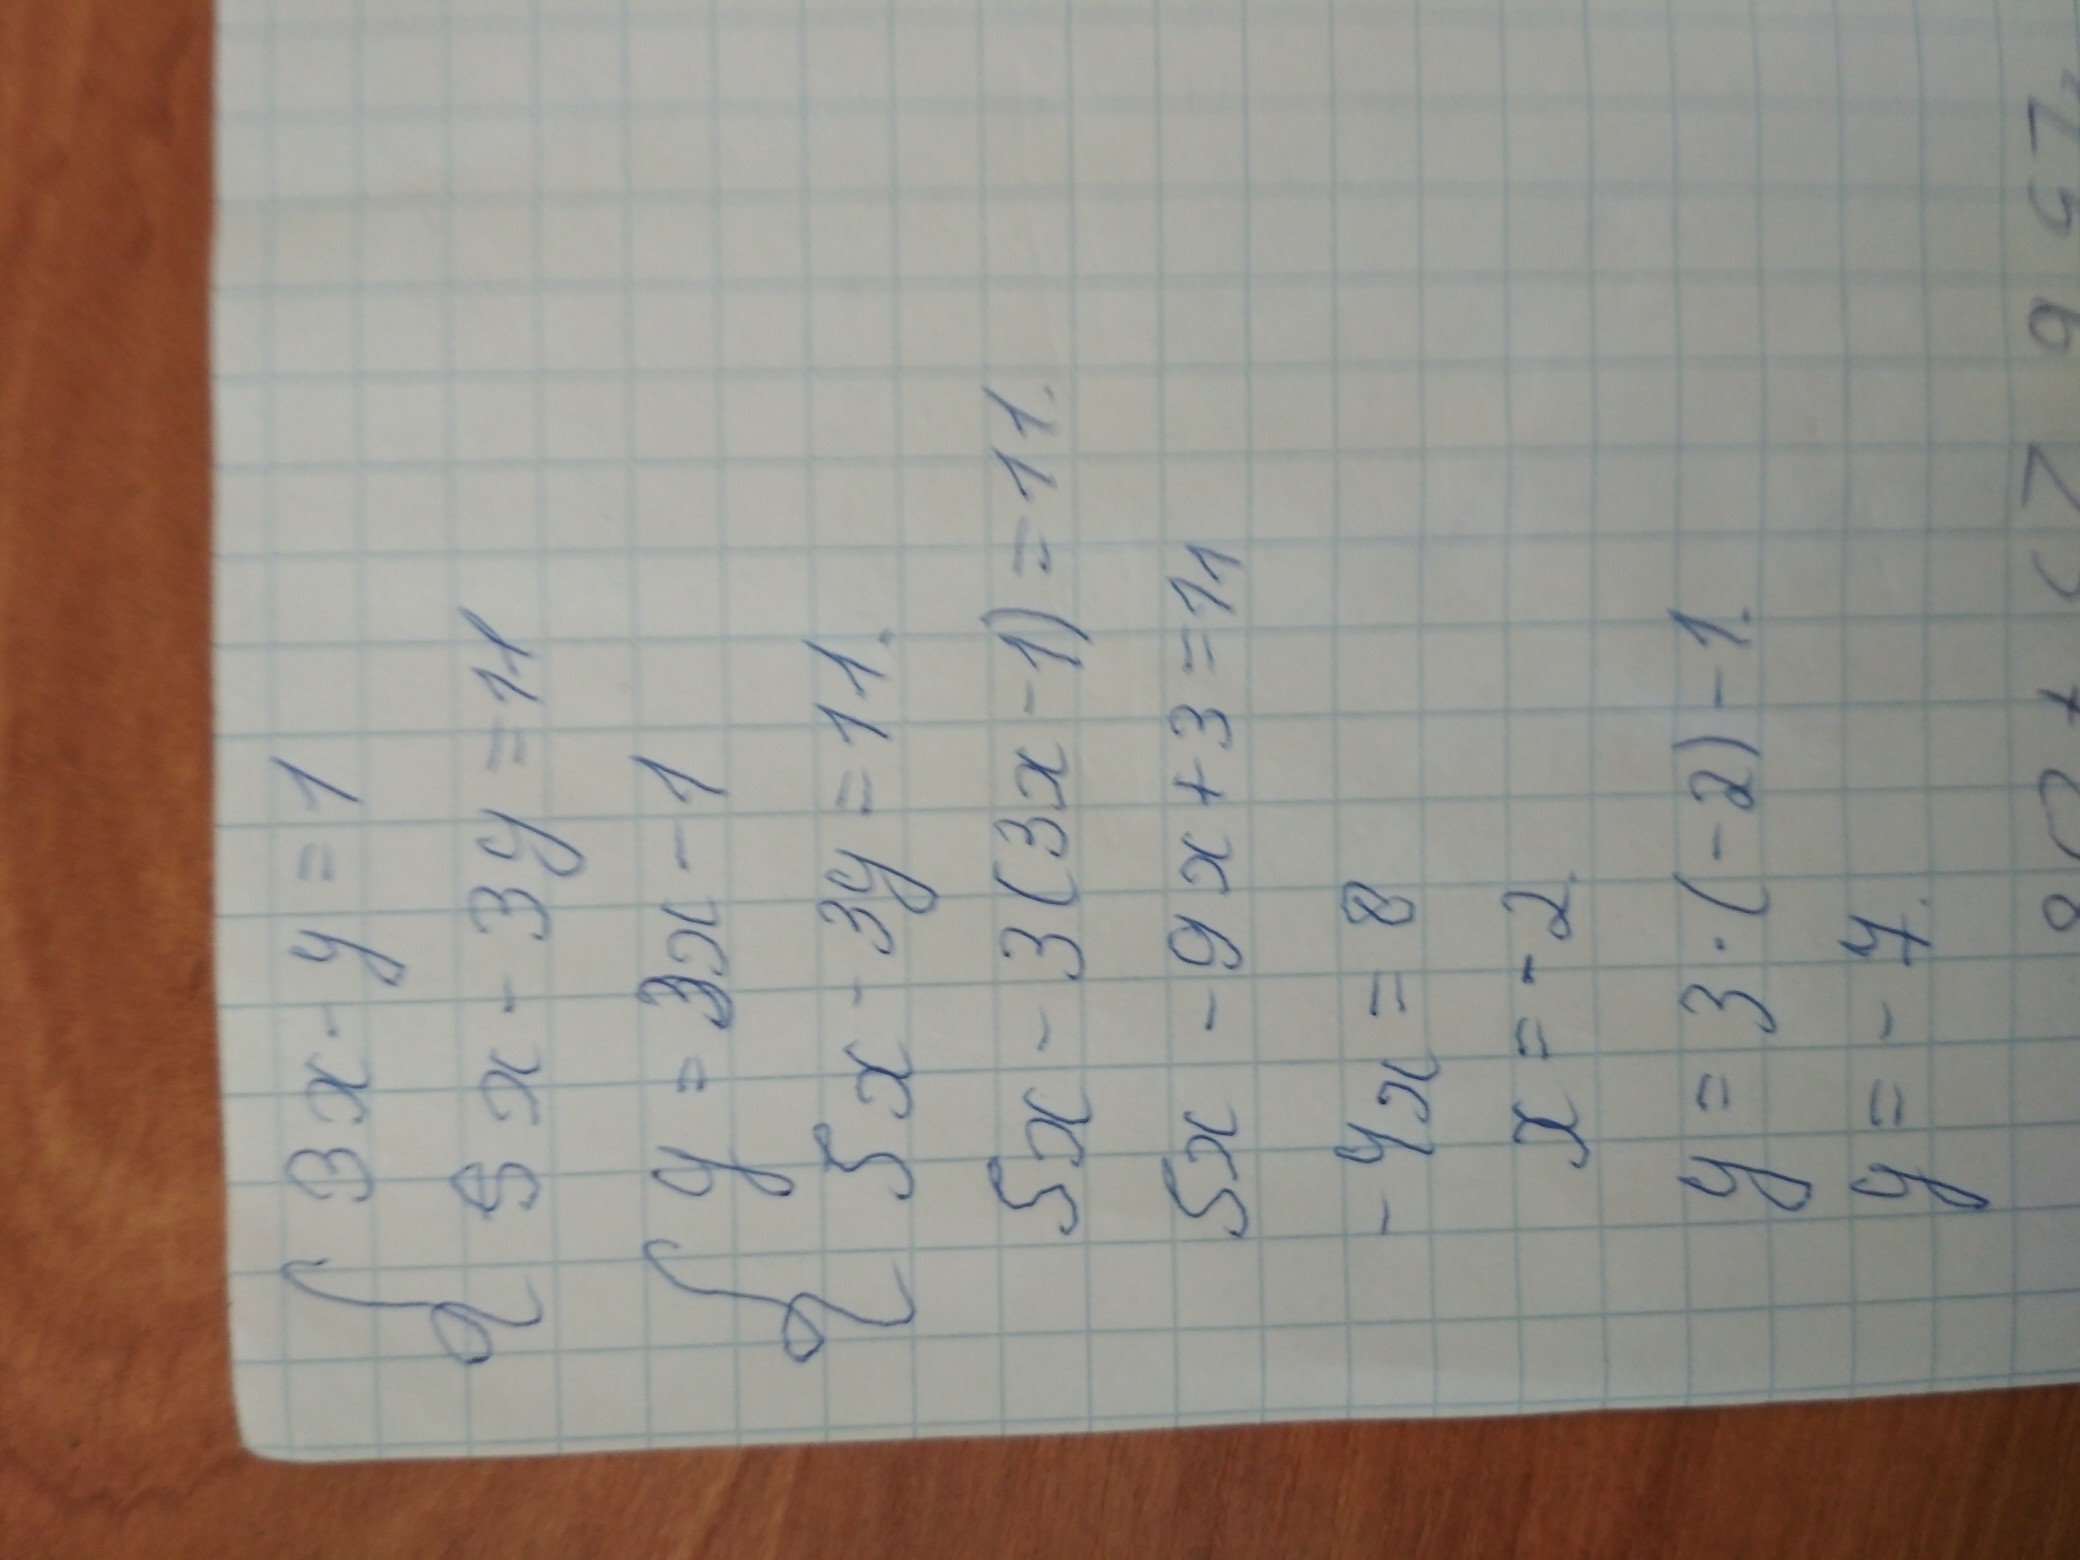 { 3x - y = 1
5x - 3y = 11
{ y = 3x - 1
5x - 3y = 11.
5x - 3(3x - 1) = 11.
5x - 9x + 3 = 11
-4x = 8
x = -2.
y = 3 · (-2) - 1.
y = - 7.